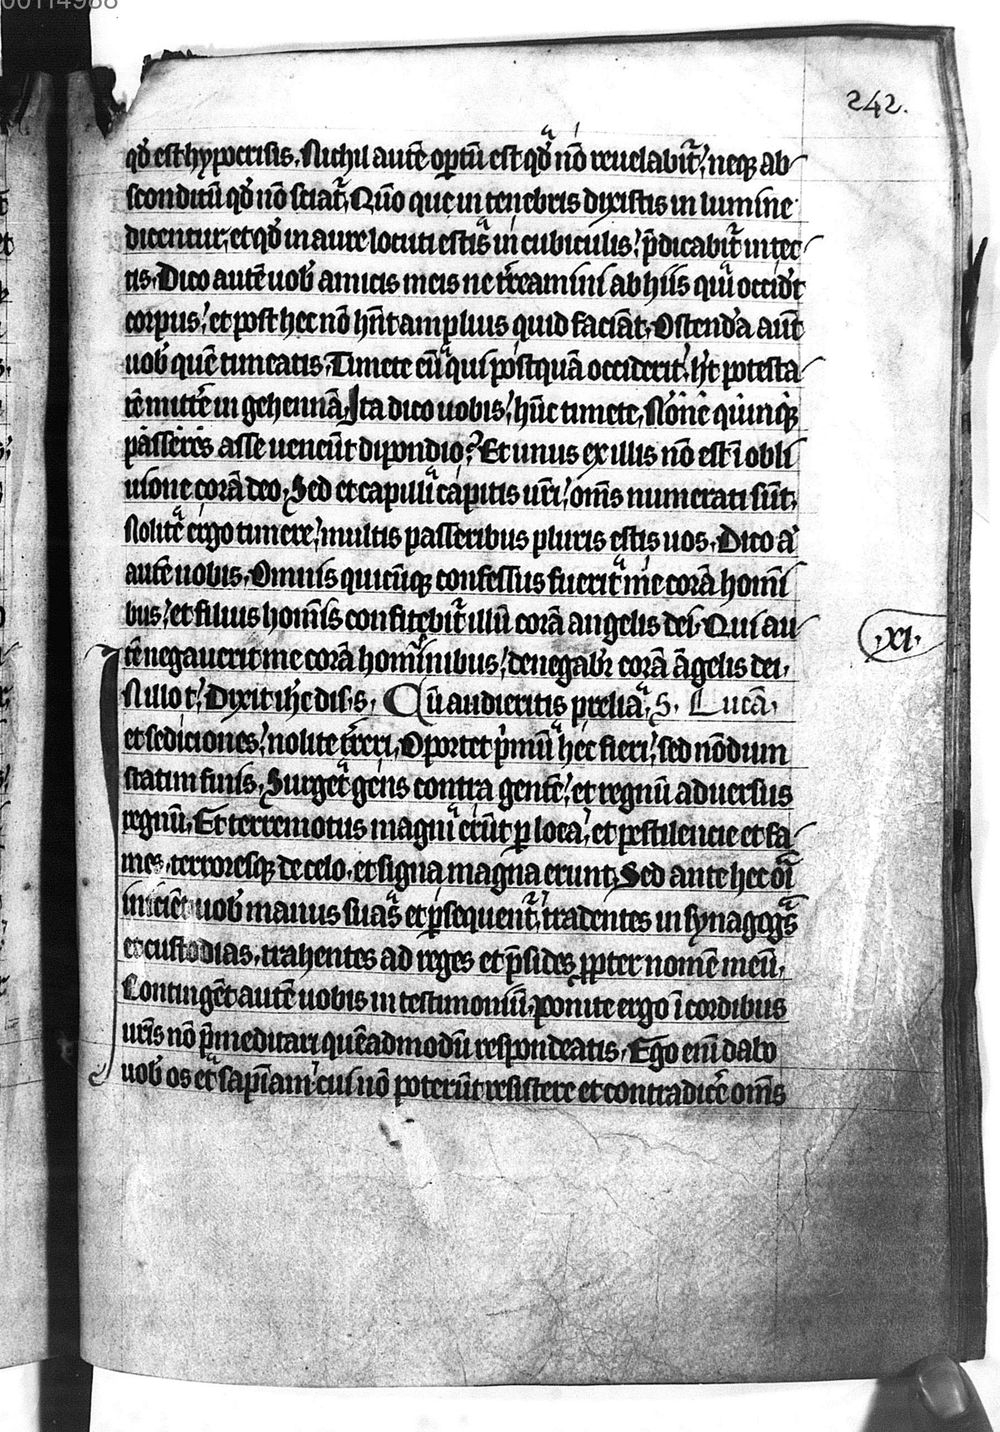 00114988
242.
qď est hypocrisis. Nichil autē optū est qď nō reuelabit᷑. neqꝫ ab-
sconditū qď nō sciat᷑. Qm̄o que in tenebris dixistis in lumine
dicentur. et qď in aure locuti estis in cubiculis. p̄dicabit᷑ in tec-
tis. Dico autē uob᷑ amicis meis ne t̄reamini ab hiis qui occidūt
corpus. et post hec nō hn̄t amplius quid faciāt. Ostendā aūt
uob᷑ quē timeatis. Timete eū qui postquā occiderit. hꝫ potesta-
tē mitte᷑ in gehennā. Ita dico uobis. hūc timete. Nōne quinqꝫ
passeres asse ueneūt dipondio? Et unus ex illis nō est ī obli
uione corā deo. Sed et capilli capitis ur̄i. om̄s numerati sūt.
Nolite ergo timere. multis passeribus pluris estis uos. Dico a
autē uobis. Omnis quicūqꝫ confessus fuerit me corā homī
bus. et filius homīs confitebit᷑ illū corā angelis dei. Qui au-
tē negauerit me corā hominibus. denegabit᷑ corā āgelis dei.
.xi.
In illo t̄. Dixit ihc̄ dis. s. Cū audieritis prelia S. Lucā.
et sediciones. nolite t̄reri. Oportet p̄mū hec fieri. sed nōdum
statim finis. Surget gens contra gentē. et regnū aduersus
regnū. Et terremotus magni erūt p loca. et pestilencie et fa-
mes. terroresqꝫ de celo. et signa magna erunt. Sed ante hec oīa
inicient uob᷑ manus suas et ꝑsequent᷑. tradentes in synagogas
et custodias. trahentes ad reges et p̄sides ꝓpter nomē meū.
Continget autē uobis in testimoniū. ponite ergo ī cordibus
ur̄is nō p̄meditari quēadmodū respondeatis. Ego enī dabo
uob᷑ os et sapīam cui nō poterūt resistere et contradice᷑ om̄s